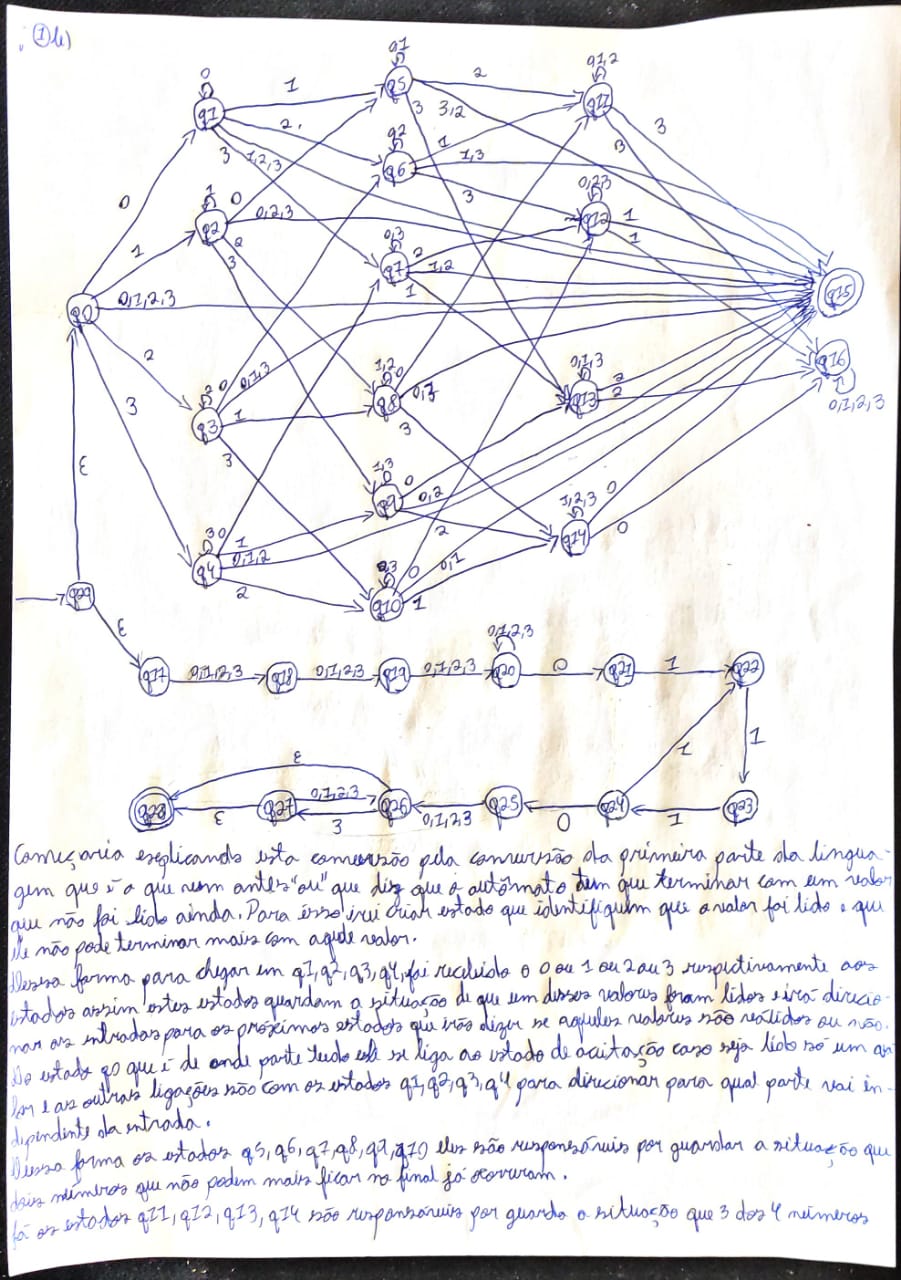 ① b)
0
1
0,1
2
0,1,2
q1
q5
q11
2
3
3,2
3
0,2
1
3
1,2,3
3
1
0
q6
1,3
0
q2
0,2,3
3
0,2,3
1
q12
1
1
0,3
2
3
q7
2
1,2
1
q15
q0
0,1,2,3
2
1,2
0
0,1,3
q16
3
2
0
0,1,3
0,1
2
q13
2
0,1,2,3
q3
1
q8
3
3
1,3
0
ε
q9
0,2
1,2,3
0
3
0
1
2
q14
0
q4
0,1,2
0,1
2
0
q29
q10
1
ε
0,1,2,3
q17
0,1,2,3
q18
0,1,2,3
q19
0,1,2,3
q20
0
q21
1
q22
ε
1
1
q28
ε
q27
0,1,2,3
ε
q26
0,1,2,3
q25
0
q24
1
q23
Começaria explicando esta conversão pela conversão da primeira parte da lingua-
gem que é o que vem antes "ou" que diz que o autômato tem que terminar com um valor
que não foi lido ainda. Para isso irei criar estado que identifiquem que o valor foi lido e que
ele não pode terminar mais com aquele valor.
Dessa forma para chegar em q1, q2, q3, q4, foi recebido o 0 ou 1 ou 2 ou 3 respectivamente aos
estados assim estes estados guardam a situação de que um desses valores foram lidos e irá direcio-
nar as entradas para os próximos estados que irão dizer se aqueles valores são válidos ou não.
Do estado q0 que é de onde parte tudo ele se liga ao estado de aceitação caso seja lido só um va
lor e as outras ligações são com os estados q1, q2, q3, q4 para direcionar para qual parte vai in-
dependente da entrada.
Dessa forma os estados q5, q6, q7, q8, q9, q10 eles são responsáveis por guardar a situação que
dois números que não podem mais ficar no final já ocorreram.
Já os estados q11, q12, q13, q14 são responsáveis por guarda a situação que 3 dos 4 números